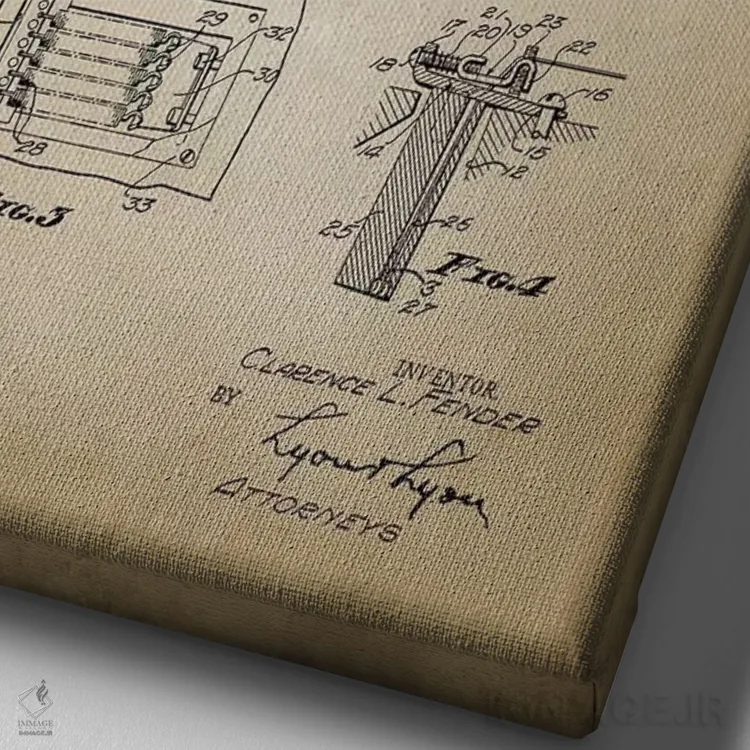 29
32
30
28
33
FIG.3
21 23
17 20 19 22
18
16
14
15
12
25
26
3
27
FIG.4
INVENTOR
CLARENCE L. FENDER
BY
Lyon & Lyon
ATTORNEYS
IMMAGE
IMMAGE.IR
IMMAGE.IR